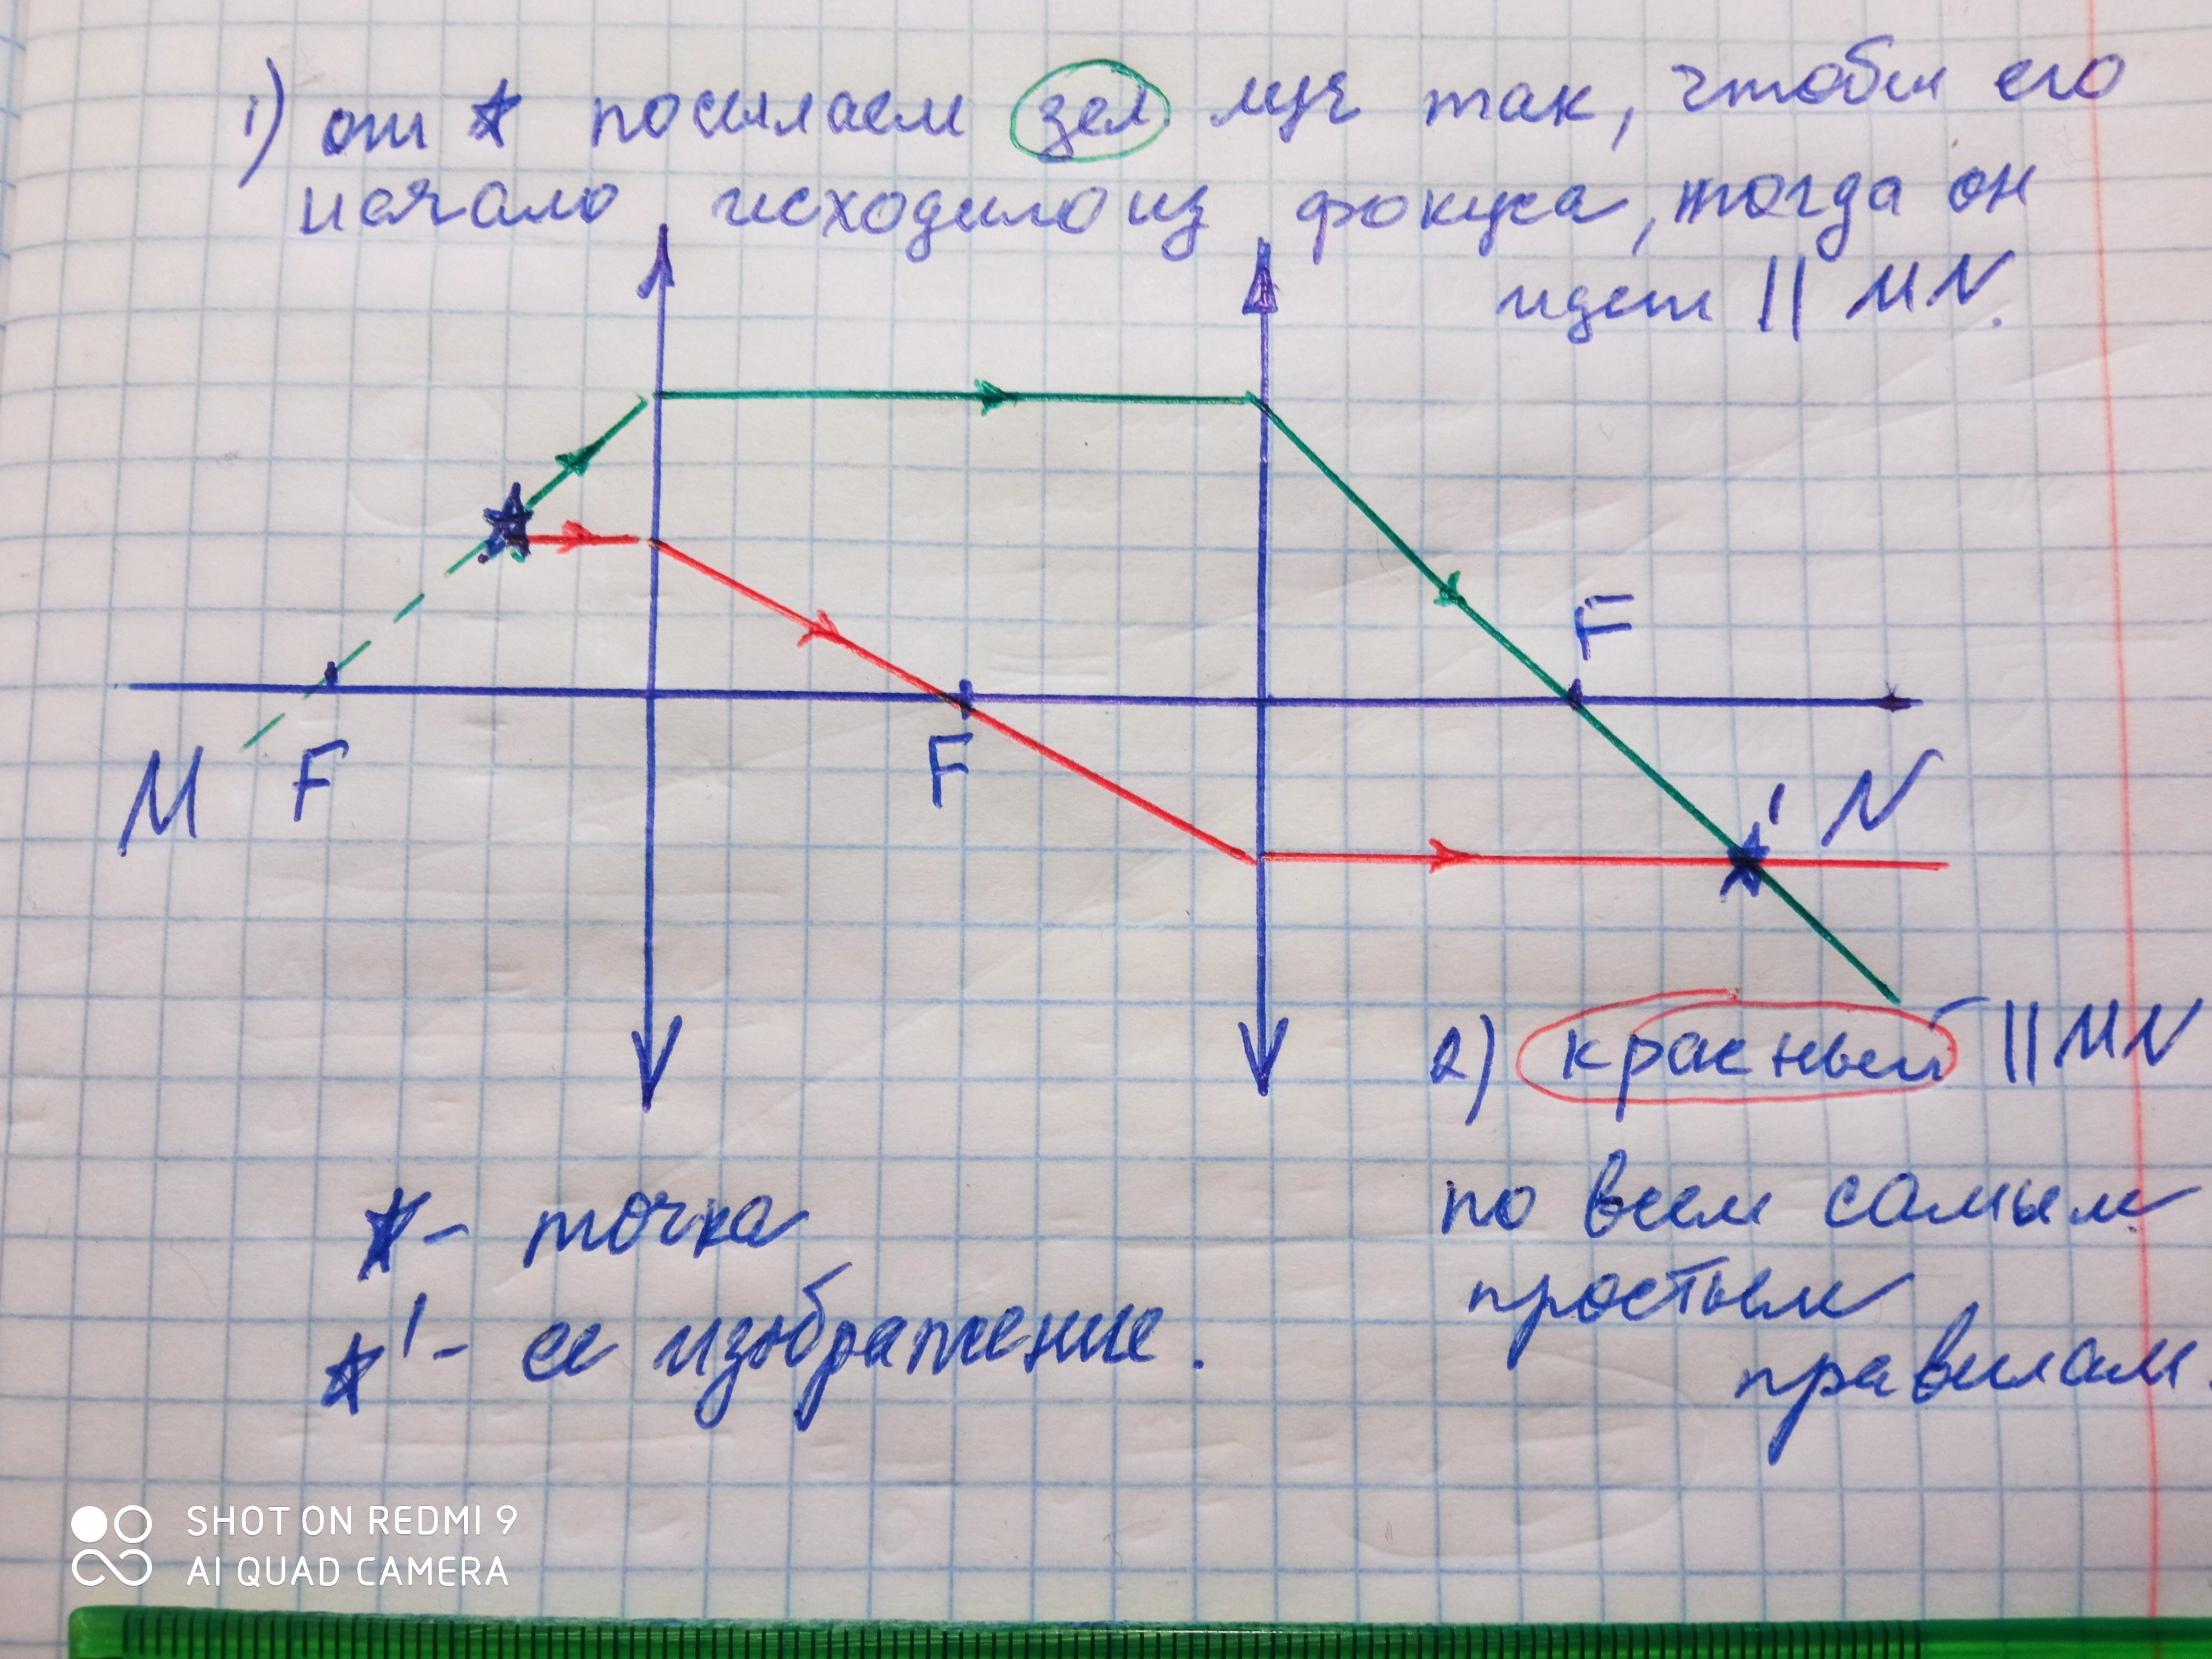 1) от ★ посылаем зел луч так, чтобы его
начало исходило из фокуса, тогда он
идет || MN.
F
M F
F
★' N
2) красный || MN
по всем самым
простым
правилам.
★ - точка
★' - ее изображение.
SHOT ON REDMI 9
AI QUAD CAMERA